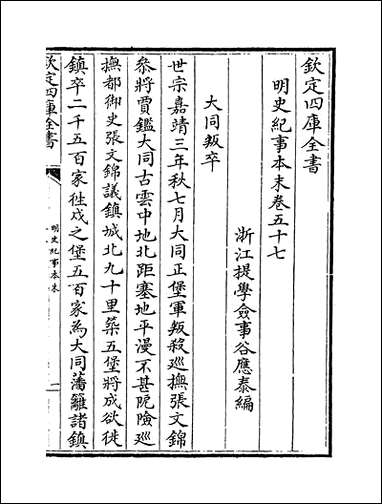 欽定四庫全書
明史紀事本末卷五十七
浙江提學僉事谷應泰編
大同叛卒
世宗嘉靖三年秋七月大同五堡軍叛殺巡撫張文錦
叅將賈鑑大同古雲中地北距塞地平漫不甚阨險巡
撫都御史張文錦議鎮城北九十里築五堡將成欲徙
鎮卒二千五百家徃戍之堡五百家為大同藩籬諸鎮
欽定四庫全書
明史紀事本末
一